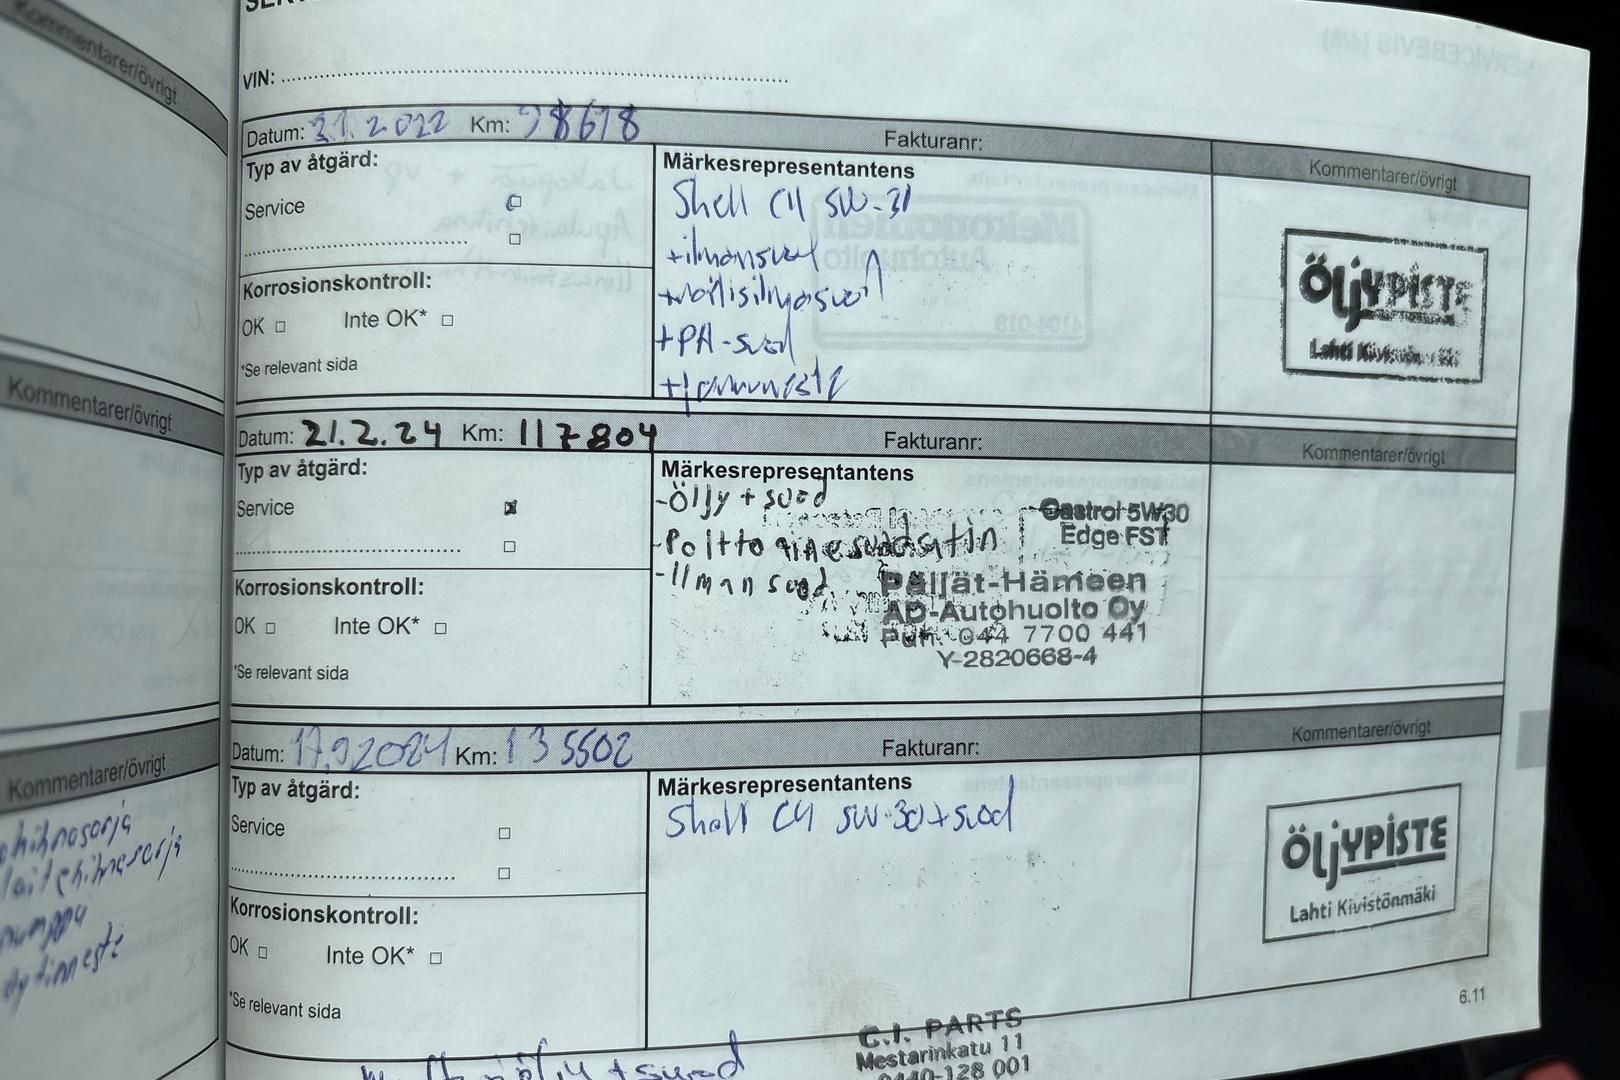 Kommentarer/övrigt
Kommentarer/övrigt
Kommentarer/övrigt
VIN:
Datum: 21.2.2022 Km: 98678 Fakturanr: Kommentarer/övrigt
Typ av åtgärd:
Service
Korrosionskontroll:
OK Inte OK*
*Se relevant sida
Märkesrepresentantens
Shell C4 5W-31
+ilmansuod
+PA-suod
+jarruneste
ÖljYPISTE
Lahti Kivistönmäki
Datum: 21.2.24 Km: 117804 Fakturanr: Kommentarer/övrigt
Typ av åtgärd:
Service
Korrosionskontroll:
OK Inte OK*
*Se relevant sida
Märkesrepresentantens
-Öljy + suod
-Polttoainesuodatin
-Ilman suod
Castrol 5W30
Edge FST
Päijät-Hämeen
AD-Autohuolto Oy
Puh. 044 7700 441
Y-2820668-4
Datum: 17.9.2024 Km: 135502 Fakturanr: Kommentarer/övrigt
Typ av åtgärd:
Service
Korrosionskontroll:
OK Inte OK*
*Se relevant sida
Märkesrepresentantens
Shell C4 5W-30+suod
ÖljYPISTE
Lahti Kivistönmäki
6.11
+ suod
C.I. PARTS
Mestarinkatu 11
0440-128 001